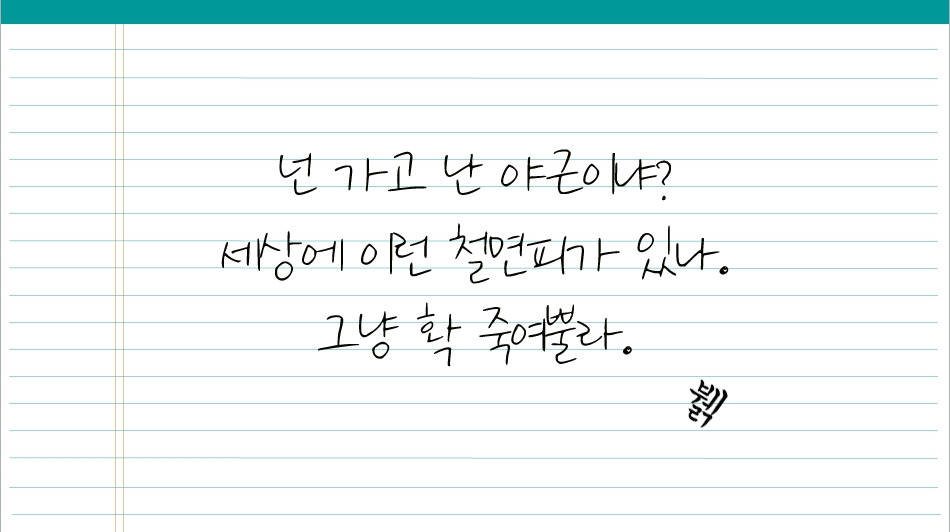 넌 가고 난 야근이냐?
세상에 이런 철면피가 있나.
그냥 확 죽여뿔라.
뷁